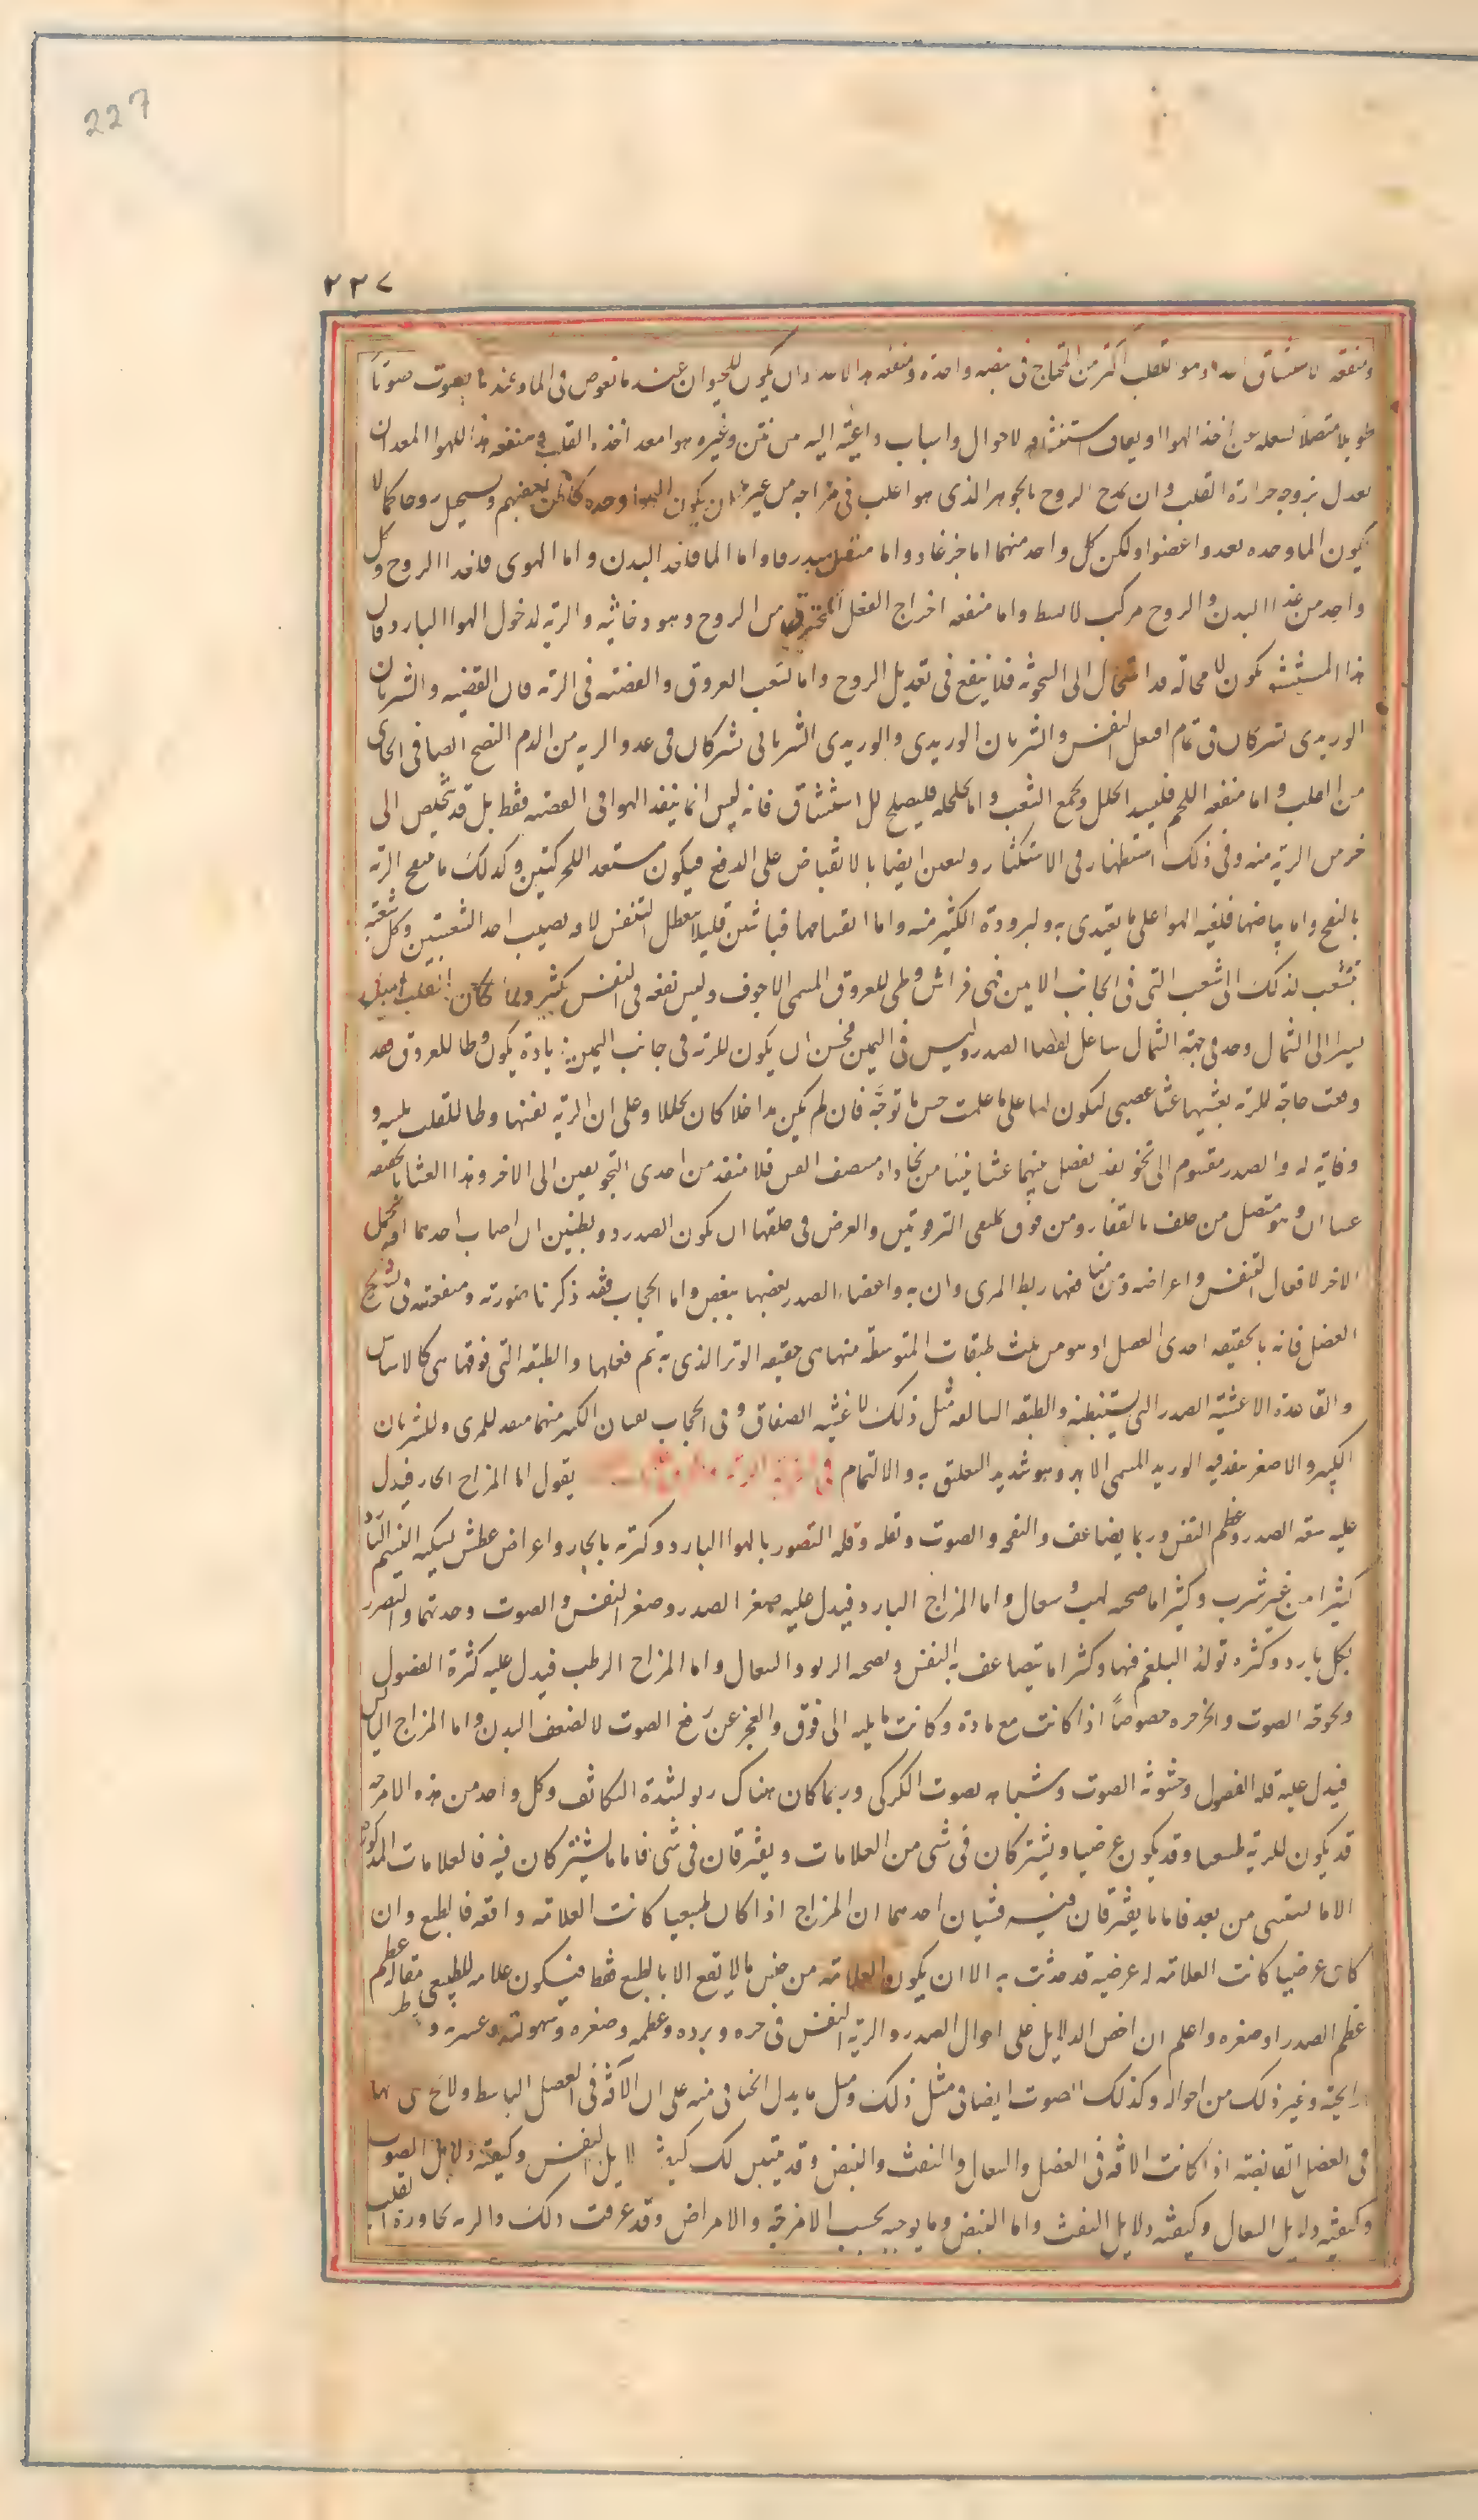 227
٢٢٧
ومنفعه الاستنشاق هو للقلب اكثر من المحتاج فى نبضه واحدة ومنفعه وان يكون للحيوان عند ما يغوص فى الماء وعند ما يصوت صوتا
طويلا متصلا يشغله عن اخذ الهوا او يعاف استنشاقه لاحوال واسباب داعية اليه من نتن وغيره هوا معد اخذه القلب ومنفعه هذا الهوا المعد ان
يعدل بروحه حرارة القلب وان يمد الروح بالجوهر الذى هو اغلب فى مزاجه من غير ان يكون الهوا وحده كما ظن بعضهم يستحيل روحا كما لا
يكون الما وحده يغدو اعضوا ولكن كل واحد منهما اما جز غاد واما منفذ مبدرقا واما الما فلغذا البدن واما الهوى فلغذا الروح وكل
واحد من غذا البدن والروح مركب لا بسيط واما منفعه اخراج الفضل المحترق من الروح وهو دخانيه والريه لدخول الهوا البارد فان
هذا المستنشق يكون لا محالة قد استحال الى السخونة فلا ينفع فى تعديل الروح واما تشعب العروق والقصبه فى الريه فان القصبه والشريان
الوريدى يشتركان فى تمام افعل النفس والشريان الوريدى والوريدى الشريانى يشتركان فى غدو الريه من الدم النضيج الصافى الجاى
من القلب واما منفعه اللحم فليسد الخلل ويجمع الشعب واما تخلخله فليصلح للاستنشاق فانه ليس انما ينفذ الهوا فى القصبه فقط بل قد يتخلص الى
جرم الريه منه وفى ذلك استظهار فى الاستكثار وليعين ايضا بالانقباض على الدفع فيكون مستعد اللحركتين وكذلك ما ينتفخ الريه
بالنفخ واما بياضها فلغلبه الهوا على ما يغتدى به ولبرودة الكثير منه واما انقسامها باثنين فليلا يتعطل التنفس لآفه تصيب احد الشعبتين وكل شعبه
تتشعب لذلك الى الشعب التى فى الجانب الايمن فهى فراش وطى للعروق المسمى الاجوف وليس نفعه فى النفس بكثير ولما كان القلب اميل
يسيرا الى الشمال وحد فى جهة الشمال شاغل لفضا الصدر وليس فى اليمين فحسن ان يكون للريه فى جانب اليمين زيادة يكون وطا للعروق فقد
وقعت حاجة للريه يغشيها غشا عصبى ليكون لها على ما علمت حس ما توجه فان لم يكن مداخلا كان مجللا وعلى ان الريه نفسها وطا للقلب بلينه و
وقاية له والصدر مقسوم الى تجويفين يفصل بينهما غشا ينشا من محاذاه منتصف القص فلا منفذ من احدى التجويفين الى الاخر وهذا الغشا بالحقيقه
غشاان وهو متصل من خلف بالفقار ومن فوق بملتقى الترقوتين والغرض فى خلقها ان يكون الصدر ذو بطنين ان اصاب احدهما آفه يكمل
الاخر لافعال التنفس واعراضه ومن منافعها ربط المرى وان به واعضاء الصدر بعضها ببعض واما الحجاب فقد ذكرنا صورته ومنفعته فى تشريح
العضل فانه بالحقيقه احدى العضل او هو من ثلث طبقات المتوسطة منها هى حقيقه الوتر الذى به يتم فعلها والطبقه التى فوقها هى كالاساس
والقاعدة الاغشية الصدر التى يستبطنه والطبقه السافله مثل ذلك لاغشيه الصفاق وفى الحجاب ثقبان الكبير منهما منفذ للمرى وللشريان
الكبير والاصغر ينفذ فيه الوريد المسمى الابهر وهو شديد التعلق به والالتحام فى امزجه الريه يقول اما المزاج الحار فيدل
عليه سعة الصدر وعظم النفس وربما يضاعف والنفخه والصوت وثقله وقله التضرر بالهوا البارد وكثرته بالحار واعراض عطش يسكنه النسيم البارد
كثيرا من غير شرب وكثيرا ما صحبه لهب وسعال واما المزاج البارد فيدل عليه صغر الصدر وصغر النفس والصوت وحدتهما والتضرر
بكل بارد وكثره تولد البلغم فيها وكثيرا ما يتضاعف به النفس ويصحبه الربو والسعال واما المزاج الرطب فيدل عليه كثرة الفضول
وبحوحه الصوت والخرخره خصوصا اذا كانت مع مادة وكانت مايله الى فوق والعجز عن رفع الصوت لا لضعف البدن واما المزاج اليابس
فيدل عليه قله الفضول وخشونه الصوت وشباهه بصوت الكركى وربما كان هناك ربو لشدة التكاثف وكل واحد من هذه الامزجه
قد يكون للريه طبيعيا وقد يكون عرضيا ويشتركان فى شى من العلامات ويفترقان فى شى فاما ما يشتركان فيه فالعلامات المذكوره
الا ما يستثنى من بعد فاما ما يفترقان فيه فشيان احدهما ان المزاج اذا كان طبيعيا كانت العلامه واقعه فالطبع وان
كان عرضيا كانت العلامه له عرضيه قد حدثت به الا ان يكون العلامه من جنس ما لا يقع الا بالطبع فقط فيكون علامه للطبيعى مثاله عظم
عظم الصدر او صغره واعلم ان اخص الدلايل على احوال الصدر والريه النفس فى حره وبرده وعظمه وصغره وسهولته وعسره و
رايحته وغير ذلك من احواله وكذلك الصوت ايضا فى مثل ذلك ومثل ما يدل الخناقى منه على ان الآفه فى العضل الباسط
فى العضل القابضة اذا كانت الافه فى العضل والسعال والنفث والنبض وقد تبين لك كيفية دلايل النفس وكيفية دلايل الصوت
وكيفية دلايل السعال وكيفيه دلايل النفث واما النبض وما يوجبه بحسب الامزجه والامراض وقد عرفت ذلك والريه مجاورة القلب